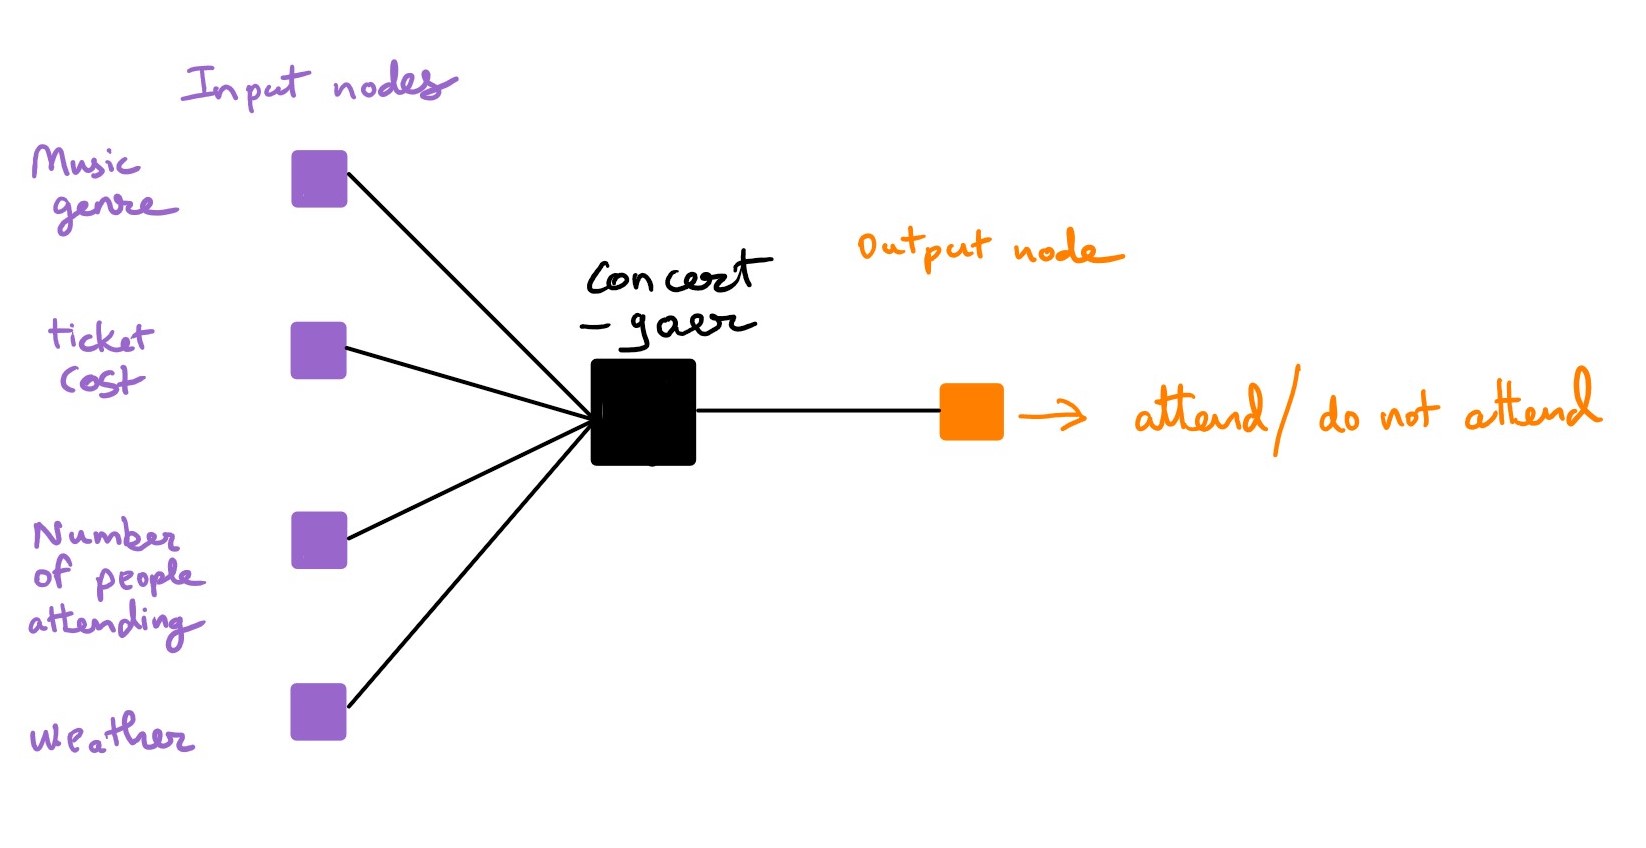 Input nodes
Music
genre
ticket
cost
Number
of people
attending
weather
Concert
- goer
Output node
→ attend/ do not attend